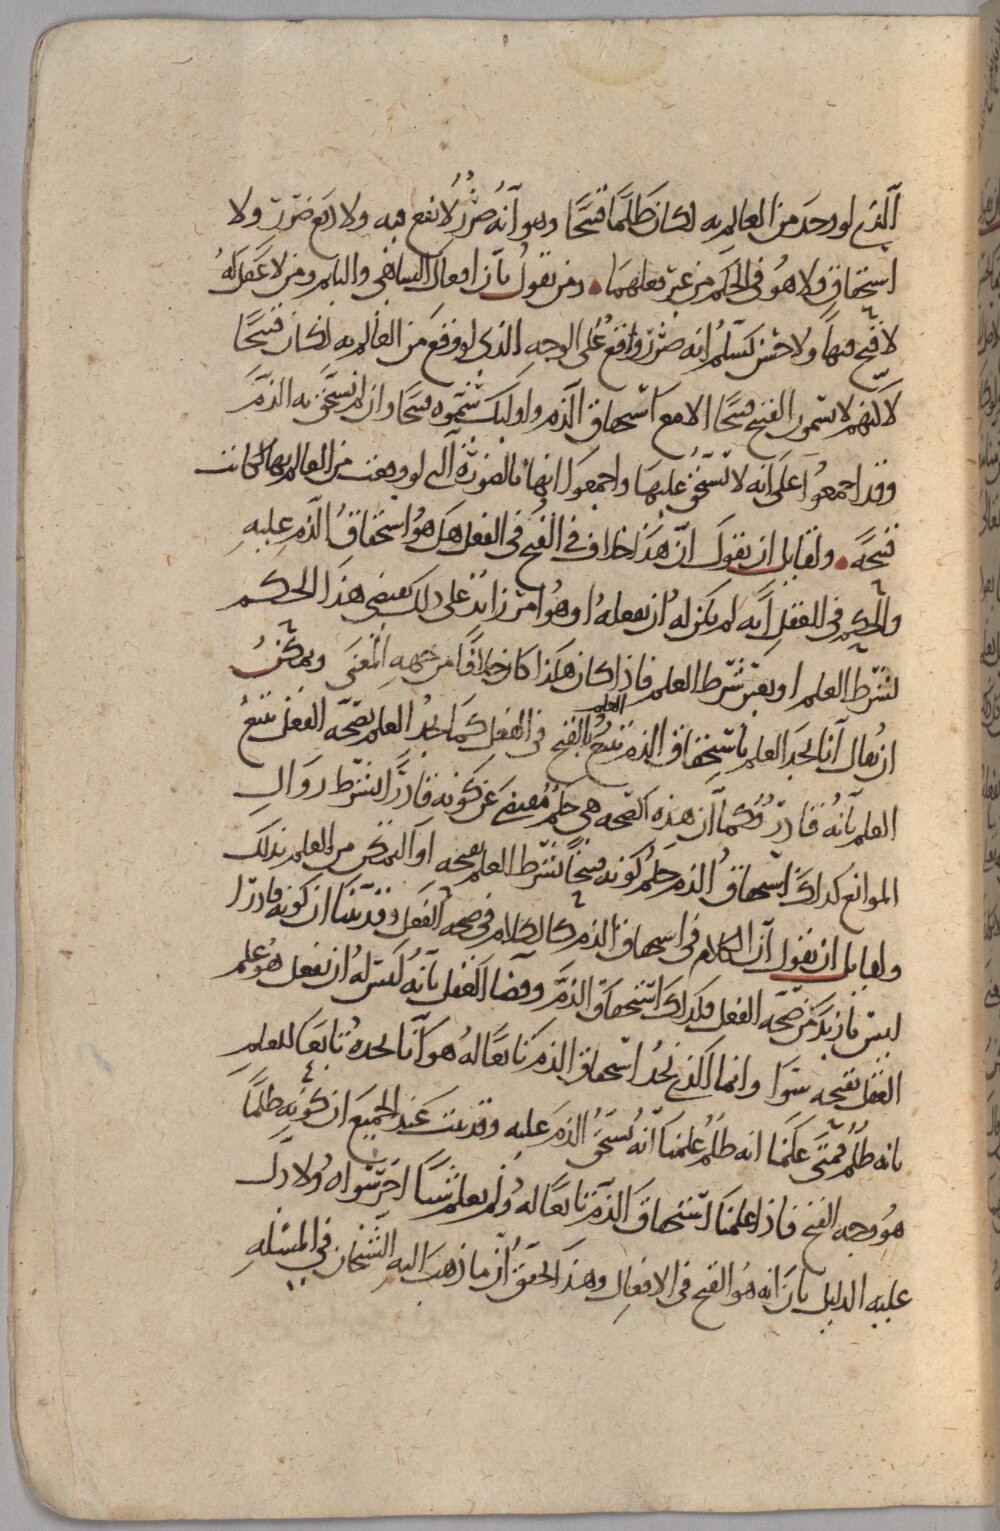 الذي لو وجد من العالم به لكان ظلما قبيحا وهو أنه ضرر لا نفع فيه ولا دفع ضرر ولا
استحقاق ولا هو في الحكم من غير فعلهما • ومن يقول بأن افعال الساهي والنايم ومن لا عقل له
لا قبح فيها ولا حسن يسلم انه ضرر واقع على الوجه الذي لو وقع من العالم به لكان قبيحا
لكنهم لا يسمون القبيح قبيحا الا مع استحقاق الذم واوليك سموه قبيحا وان لم يستحق به الذم
وقد اجمعوا على انه لا يستحق عليها واجمعوا انها بالصورة التي لو وقعت من العالم بها لكانت
قبيحة • ولقايل ان يقول ان هذا خلاف في القبح في الفعل هل هو استحقاق الذم عليه
والحكم في العقل انه لم يكن له ان يفعله او هو امر زائد على ذلك يقتضي هذا الحكم
بشرط العلم او بغير شرط العلم فاذا كان هكذا كان خلافا من جهة المعنى ويمكن
ان يقال انا نجد العلم باستحقاق الذم يتبع العلم بالقبح في الفعل كما نجد العلم بصحة الفعل يتبع
العلم بأنه قادر وكما ان هذه الصحة هي حكم مقتضى عن كونه قادرا بشرط زوال
الموانع كذلك استحقاق الذم حكم كونه قبيحا بشرط العلم بقبحه او التمكن من العلم بذلك
ولقايل ان يقول ان الكلام في استحقاق الذم كالكلام في صحة الفعل وقد بينا ان كونه قادرا
ليس بأزيد من صحة الفعل فكذلك استحقاق الذم وقضا العقل بأنه ليس له ان يفعل هو علم
العقل بقبحه سوا وانما الذي نجد استحقاق الذم تابعا له هو انا نجده تابعا للعلم
بانه ظلم فمتى علمنا انه ظلم علمنا انه يستحق الذم عليه وقد بينت عند الجميع ان كونه ظلما
هو وجه القبح فاذا علمنا استحقاق الذم تابعا له ولم نعلم شيئا اخر سواه ولا دل
عليه الدليل بان انه هو القبح في الافعال وهذا يحقق ان ما ذهب اليه الشيخان في المسئلة